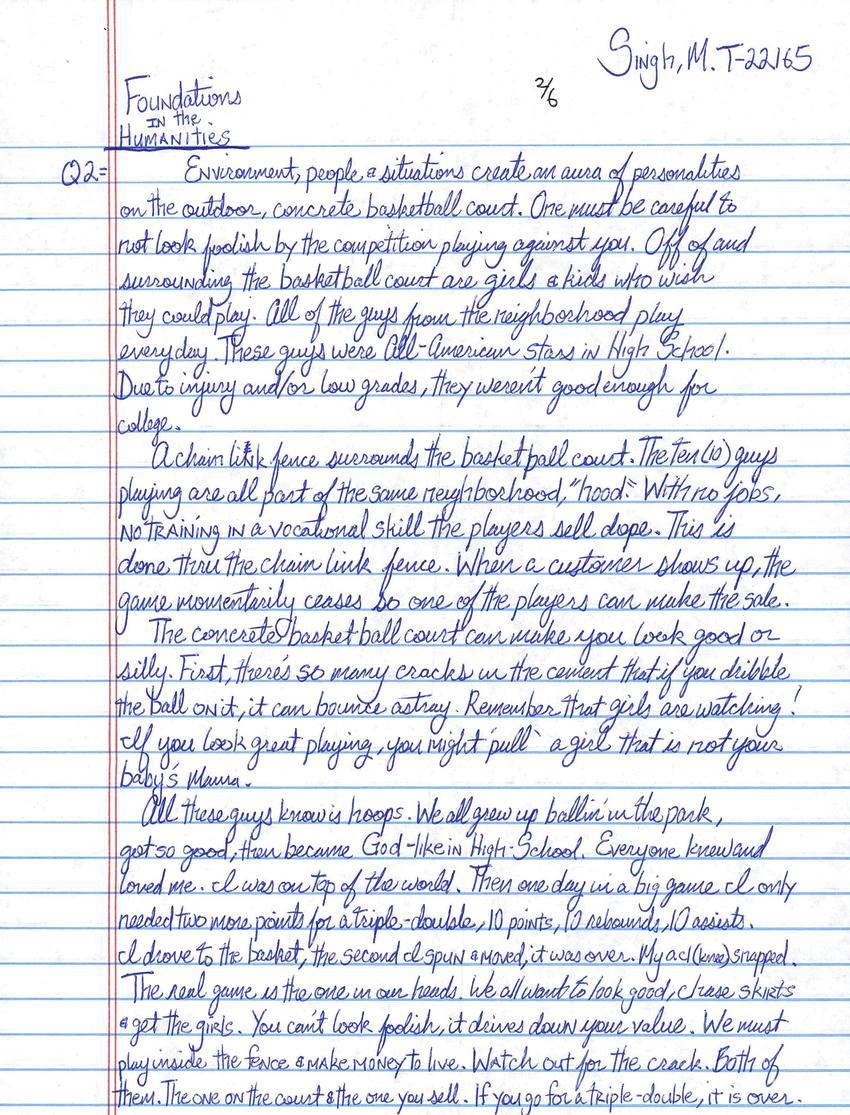 Singh, M. T-22165
2/6
Foundations
IN the.
HUMANITIES
Q2= Environment, people & situations create an aura of personalities
on the outdoor, concrete basketball court. One must be careful to
not look foolish by the competition playing against you. Off of and
surrounding the basketball court are girls & kids who wish
they could play. All of the guys from the neighborhood play
everyday. These guys were All-American stars in High School.
Due to injury and/or low grades, they weren't good enough for
college.
A chain link fence surrounds the basketball court. The ten (10) guys
playing are all part of the same neighborhood, "hood". With no jobs,
NO TRAINING IN a vocational skill the players sell dope. This is
done thru the chain link fence. When a customer shows up, the
game momentarily ceases so one of the players can make the sale.
The concrete basketball court can make you look good or
silly. First, there's so many cracks in the cement that if you dribble
the ball on it, it can bounce astray. Remember that girls are watching!
If you look great playing, you might 'pull' a girl that is not your
baby's Mama.
All these guys know is hoops. We all grew up ballin' in the park,
got so good, then became God-like in High-School. Everyone knew and
loved me. I was on top of the world. Then one day in a big game I only
needed two more points for a triple-double, 10 points, 10 rebounds, 10 assists.
I drove to the basket, the second I spun & moved, it was over. My acl (knee) snapped.
The real game is the one in our heads. We all want to look good, chase skirts
& get the girls. You can't look foolish, it drives down your value. We must
play inside the fence & make money to live. Watch out for the crack. Both of
them. The one on the court & the one you sell. If you go for a triple-double, it is over.